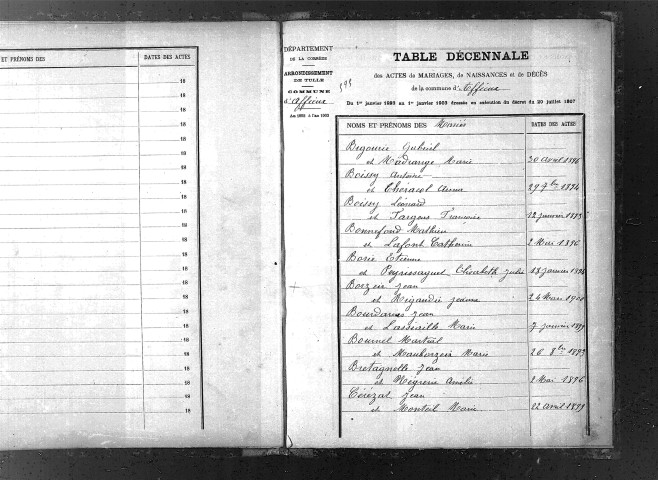 ET PRÉNOMS DES
DATES DES ACTES
18
18
18
18
18
18
18
18
18
18
18
18
18
18
18
18
DÉPARTEMENT
DE LA CORRÈZE
ARRONDISSEMENT
DE TULLE
COMMUNE
d'Affieux
TABLE DÉCENNALE
des ACTES de MARIAGES, de NAISSANCES et de DÉCÈS
de la commune d'Affieux
Du 1er janvier 1893 au 1er janvier 1903 dressée en exécution du décret du 20 juillet 1807
NOMS ET PRÉNOMS DES Mariés
DATES DES ACTES
Begourie Gabriel
et Madrange Marie 30 avril 1896
Boissy Antoine
et Chézacol Anna 29 7bre 1894
Boissy Léonard
et Fargeas Françoise 12 janvier
Bonnefond Mathieu
et Lafont Catherine 2 Mai 1896
Borie Etienne
et Peyrissaguet Elisabeth Julie 18 janvier
Borzeix Jean
et Rigaudie Jeanne 24 Mars
Bourdarias Jean
et Marie 7 janvier
Bournel Martial
et Mauborzeix Marie 26 8bre 1893
Bretagnolle Jean
et Négrerie Amélie 2 Mai 1896
Cérézat Jean
et Monteil Marie 22 avril 1899